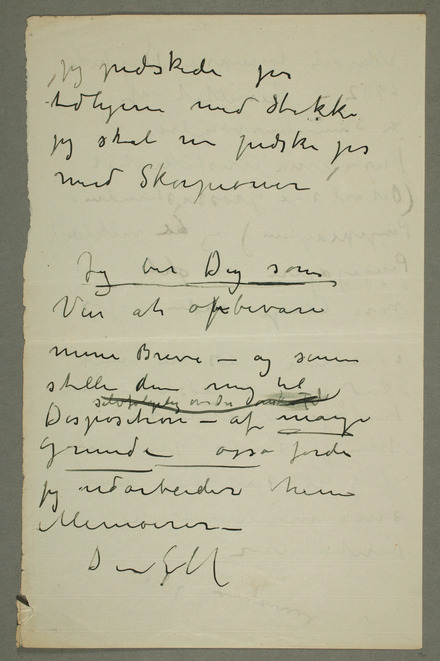 „jeg pidskede jer
tidligere med Stokke
jeg skal nu pidske jer
med Skorpioner
Jeg ber Dig som
Ven at opbevare
mine Breve – og
stille dem mig til
Disposition – af mange
Grunde også fordi
jeg udarbeider
Memoirer –
Din EM